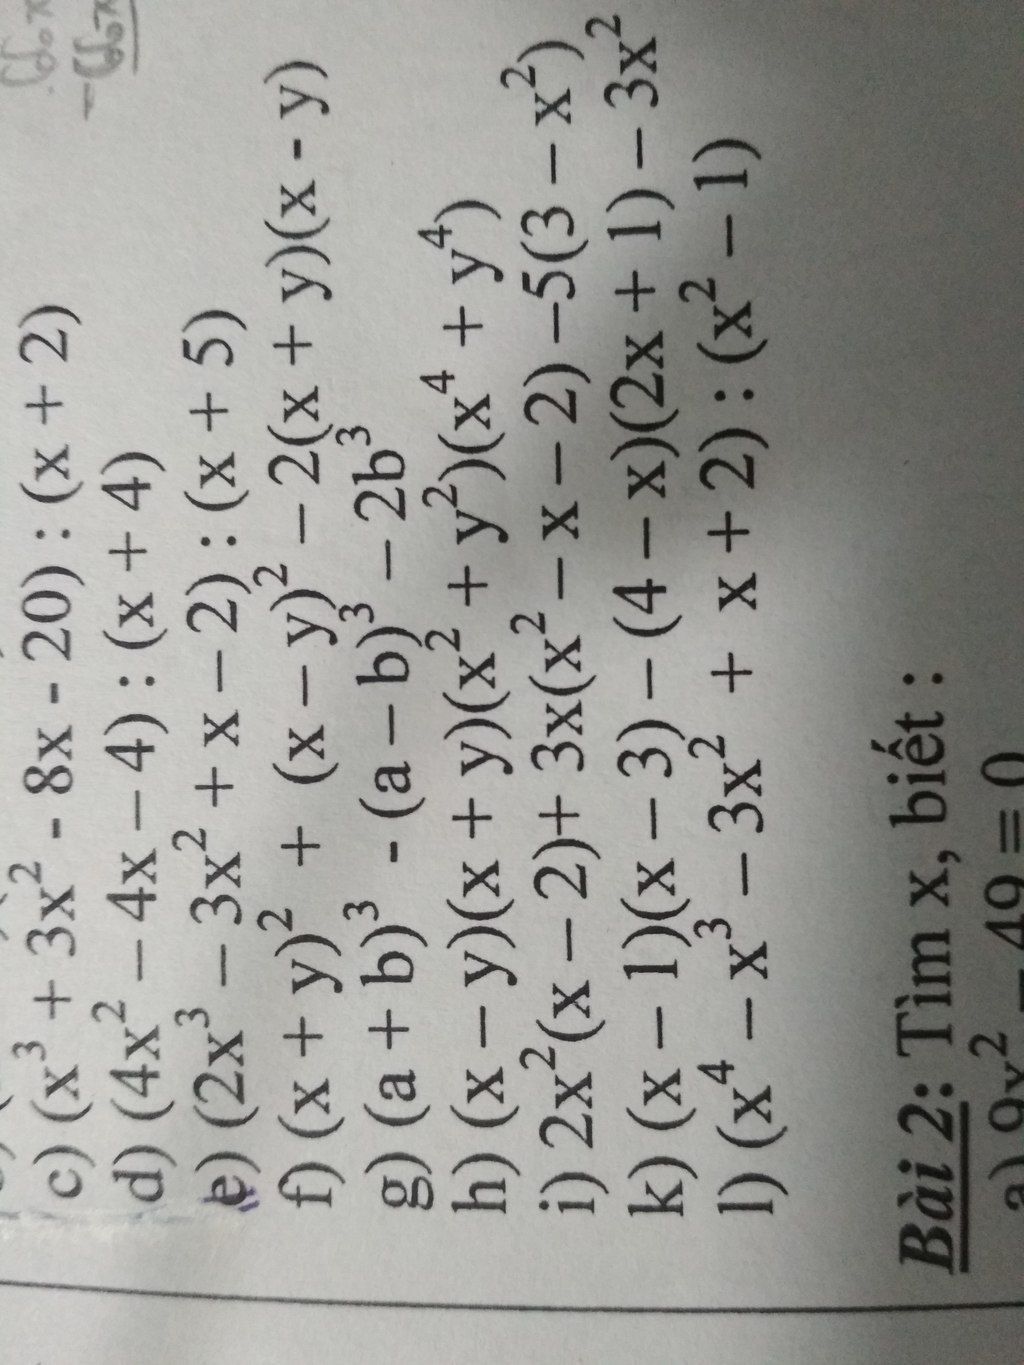 c) (x³ + 3x² - 8x - 20) : (x + 2)
d) (4x² – 4x – 4) : (x + 4)
e) (2x³ – 3x² + x – 2) : (x + 5)
f) (x + y)² + (x – y)² – 2(x + y)(x - y)
g) (a + b)³ - (a – b)³ – 2b³
h) (x – y)(x + y)(x² + y²)(x⁴ + y⁴)
i) 2x²(x – 2)+ 3x(x² – x – 2) –5(3 – x²)
k) (x – 1)(x – 3) – (4 – x)(2x + 1) – 3x²
l) (x⁴ – x³ – 3x² + x + 2) : (x² – 1)
Bài 2: Tìm x, biết :
a) 9x² – 49 = 0